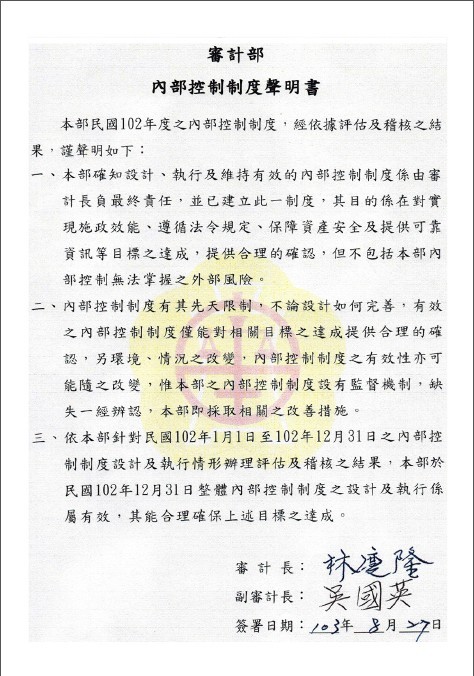 審計部
內部控制制度聲明書
本部民國102年度之內部控制制度，經依據評估及稽核之結
果，謹聲明如下：
一、本部確知設計、執行及維持有效的內部控制制度係由審
計長負最終責任，並已建立此一制度，其目的係在對實
現施政效能、遵循法令規定、保障資產安全及提供可靠
資訊等目標之達成，提供合理的確認，但不包括本部內
部控制無法掌握之外部風險。
二、內部控制制度有其先天限制，不論設計如何完善，有效
之內部控制制度僅能對相關目標之達成提供合理的確
認，另環境、情況之改變，內部控制制度之有效性亦可
能隨之改變，惟本部之內部控制制度設有監督機制，缺
失一經辨認，本部即採取相關之改善措施。
三、依本部針對民國102年1月1日至102年12月31日之內部控
制制度設計及執行情形辦理評估及稽核之結果，本部於
民國102年12月31日整體內部控制制度之設計及執行係
屬有效，其能合理確保上述目標之達成。
審計長：林慶隆
副審計長：吳國英
簽署日期：103年8月27日